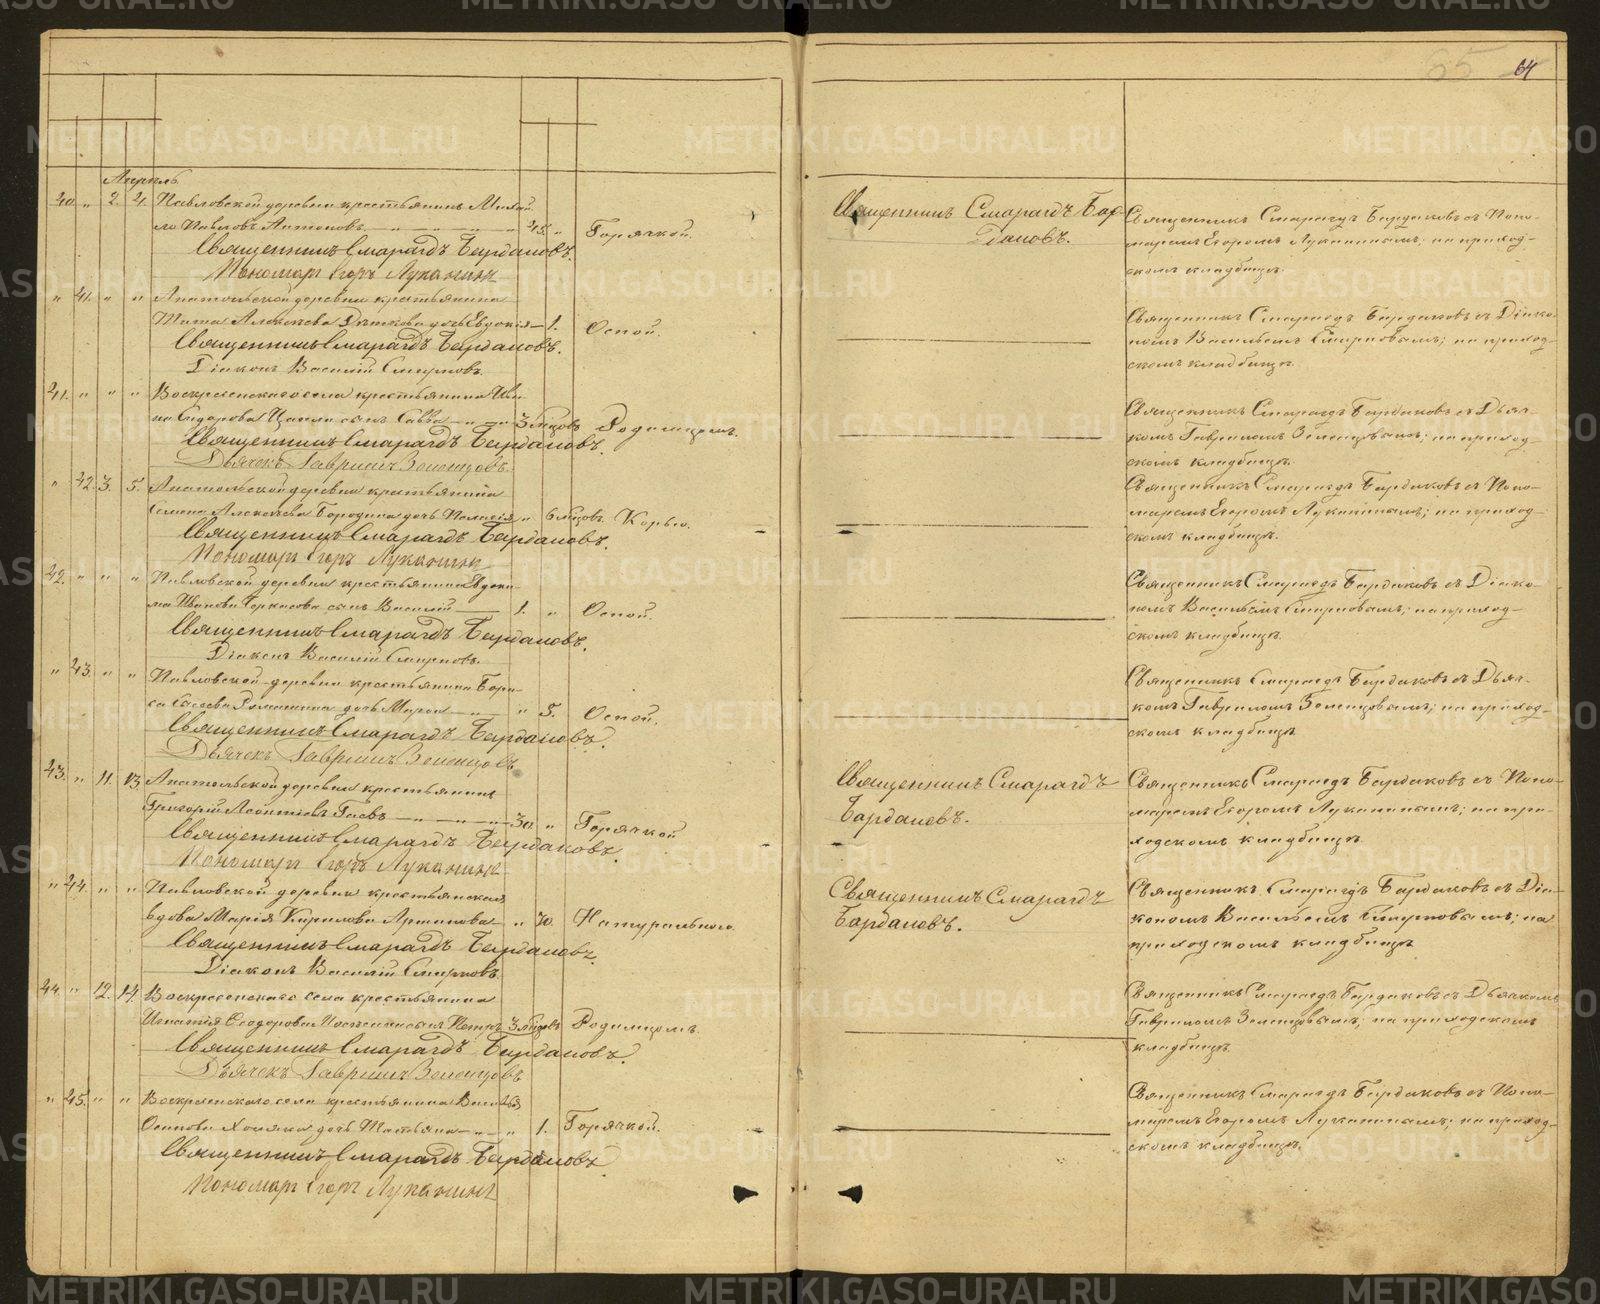 64
Апрель
40 " 2. 4. Павловской деревни крестьянинъ Михай-
ло Павловъ Антоновъ 45. " Горячкой.
Священникъ Смарагдъ Бардаковъ.
Пономарь Егоръ Луканинъ
" 41. " " Анатольской деревни крестьянина
Тита Алексѣева дочь Евдокія 1. Оспой.
Священникъ Смарагдъ Бардаковъ.
Діаконъ Василій Смирновъ.
41. " " " Воскресенскаго села крестьянина Ива-
на Сидорова сынъ Савва 3 мѣсяцовъ Родимцемъ.
Священникъ Смарагдъ Бардаковъ.
Дьячекъ Гавріилъ Зеленцовъ.
" 42. 3. 5. Анатольской деревни крестьянина
Семена Алексѣева Бородина дочь Пелагія " 6 мѣсяцовъ. Корью.
Священникъ Смарагдъ Бардаковъ.
Пономарь Егоръ Луканинъ
42. " " " Павловской деревни крестьянина Евдоки-
ма Иванова сынъ Василій 1. " Оспой.
Священникъ Смарагдъ Бардаковъ.
Діаконъ Василій Смирновъ.
" 43. " " Павловской деревни крестьянина Бори-
са дочь Марья " 5. Оспой.
Священникъ Смарагдъ Бардаковъ.
Дьячекъ Гавріилъ Зеленцовъ
43. " 11. 13 Анатольской деревни крестьянинъ
Григорій Леонтіевъ Гаевъ 30. " Горячкой
Священникъ Смарагдъ Бардаковъ.
Пономарь Егоръ Луканинъ
" 44. " " Павловской деревни крестьянская
вдова Марія Кирилова " 70. Натурального.
Священникъ Смарагдъ Бардаковъ.
Діаконъ Василій Смирновъ.
44 " 12. 14 Воскресенскаго села крестьянина
Игнатія Ѳеодорова сынъ Петръ 3 мѣсяцовъ Родимцемъ.
Священникъ Смарагдъ Бардаковъ.
Дьячекъ Гавріилъ Зеленцовъ
" 45. " " Воскресенскаго села крестьянина
Осипова дочь Татьяна " 1. Горячкой.
Священникъ Смарагдъ Бардаковъ
Пономарь Егоръ Луканинъ
Священникъ Смарагдъ Бар-
даковъ.
Священникъ Смарагдъ
Бардаковъ.
Священникъ Смарагдъ
Бардаковъ.
Священникъ Смарагдъ Бардаковъ съ Поно-
маремъ Егоромъ Луканинымъ; на приход-
скомъ кладбищѣ.
Священникъ Смарагдъ Бардаковъ съ Діако-
номъ Васильемъ Смирновымъ; на приход-
скомъ кладбищѣ.
Священникъ Смарагдъ Бардаковъ съ Дьяч-
комъ Гавриломъ Зеленцовымъ; на приход-
скомъ кладбищѣ.
Священникъ Смарагдъ Бардаковъ съ Поно-
маремъ Егоромъ Луканинымъ; на приход-
скомъ кладбищѣ.
Священникъ Смарагдъ Бардаковъ съ Діако-
номъ Васильемъ Смирновымъ; на приход-
скомъ кладбищѣ.
Священникъ Смарагдъ Бардаковъ съ Дьяч-
комъ Гавриломъ Зеленцовымъ; на приход-
скомъ кладбищѣ
Священникъ Смарагдъ Бардаковъ съ Поно-
маремъ Егоромъ Луканинымъ; на при-
ходскомъ кладбищѣ
Священникъ Смарагдъ Бардаковъ съ Діа-
кономъ Васильемъ Смирновымъ; на
приходскомъ кладбищѣ
Священникъ Смарагдъ Бардаковъ съ Дьячкомъ
Гавриломъ Зеленцовымъ; на приходскомъ
кладбищѣ.
Священникъ Смарагдъ Бардаковъ съ Поно-
маремъ Егоромъ Луканинымъ; на приход-
скомъ кладбищѣ.
METRIKI.GASO-URAL.RU